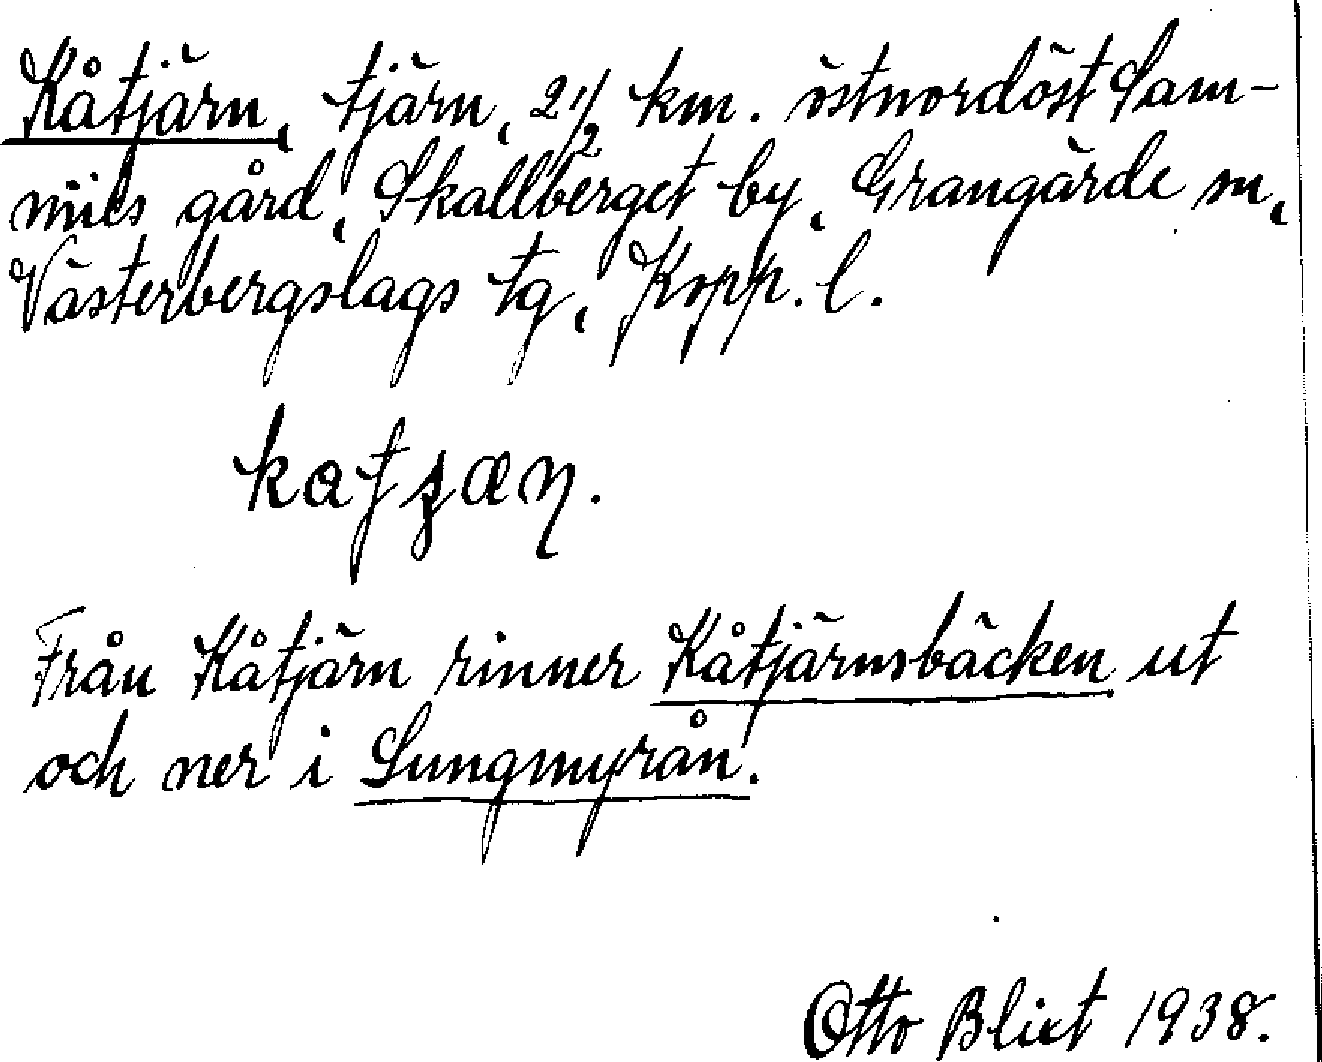 Kåtjärn, tjärn, 2 1/2 km. östnordöst Sam-
mils gård, Skallberget by, Grangärde sn,
Västerbergslags tg, Kopp. l.
Från Kåtjärn rinner Kåtjärnsbäcken ut
och ner i Lungmyrån.
Otto Blixt 1938.